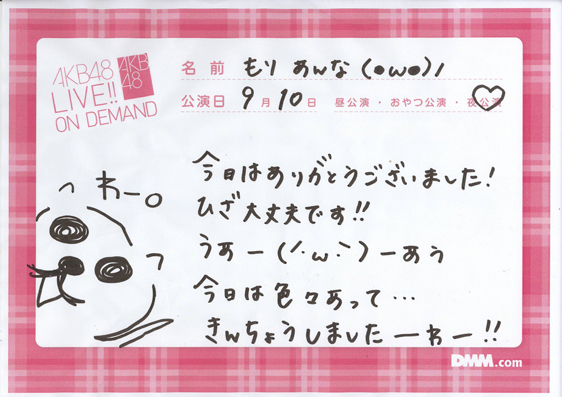 AKB48
LIVE!!
ON DEMAND
AKB
48
名前 もり あんな (●ω●)ノ
公演日 9月10日 昼公演・おやつ公演・夜公演
わー。
今日はありがとうございました!
ひざ大丈夫です!!
うあー(´・ω・`)ーあう
今日は色々あって…
きんちょうしましたーわー!!
DMM.com